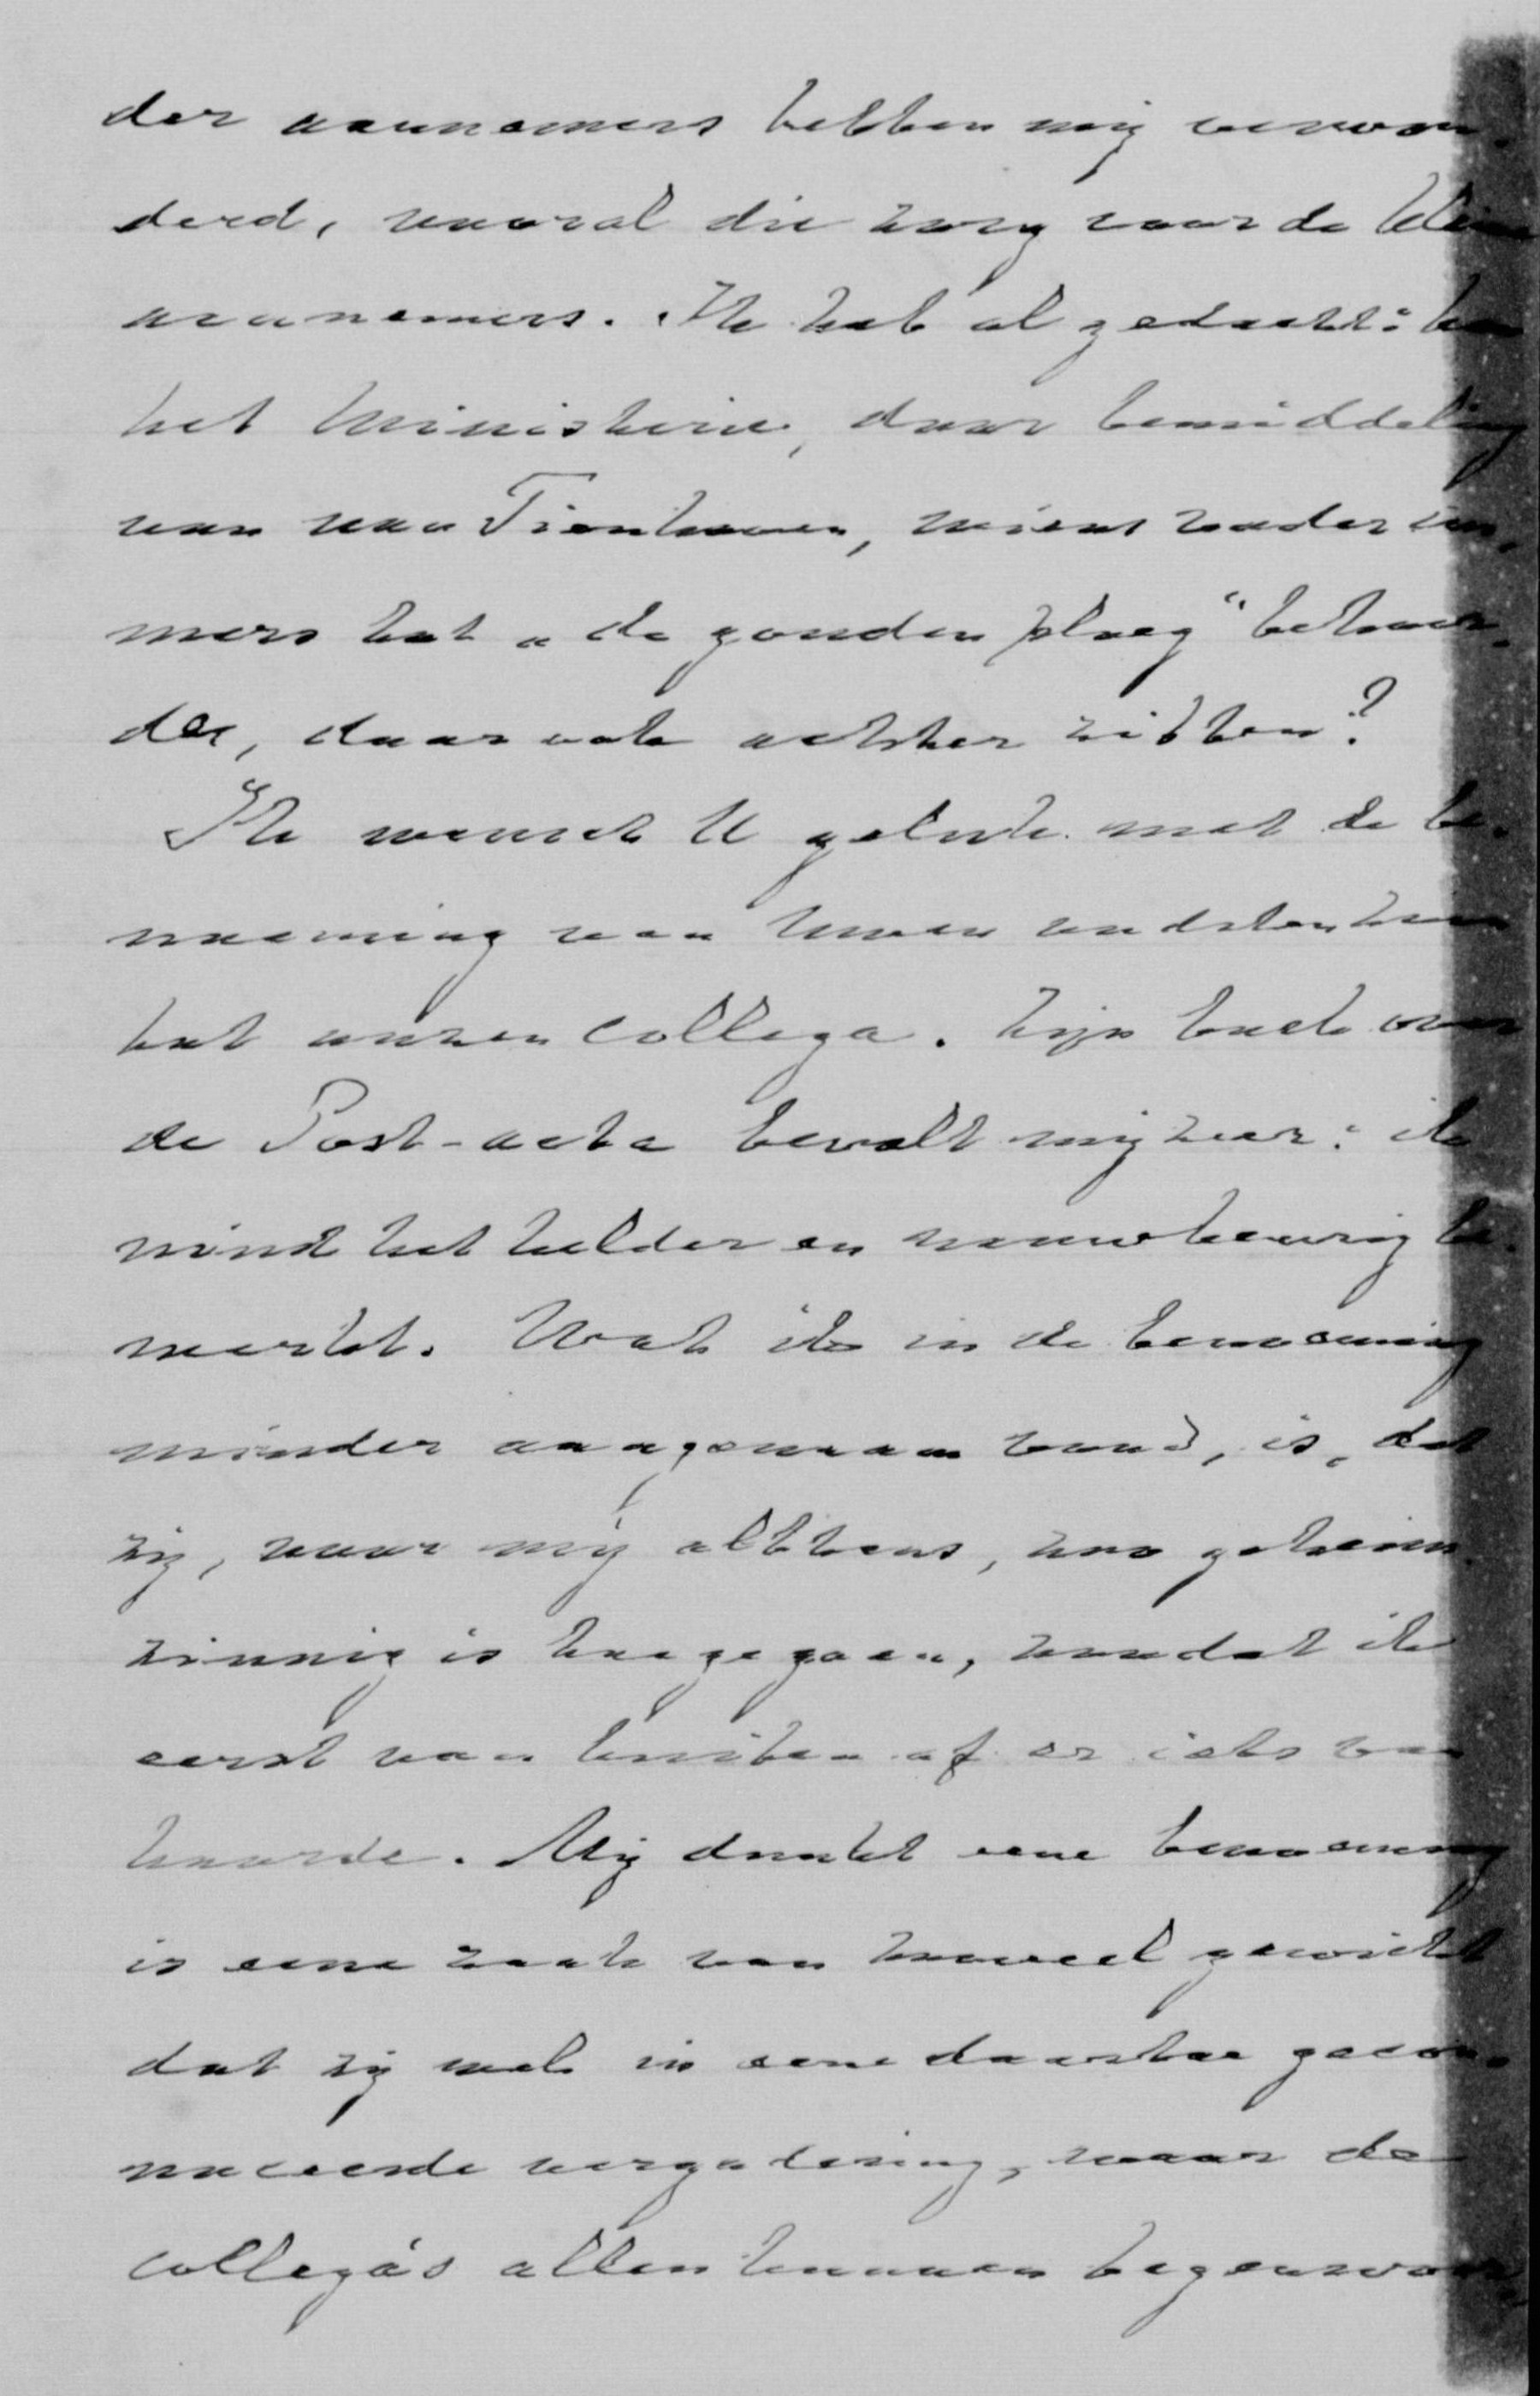 der aannemers hebben mij verwon-
derd, vooral die zorg voor de kleine
aannemers. Ik heb al gedacht: kan
het Ministerie, door bemiddeling
van van Tienhoven, wiens vader im-
mers tot "de gouden ploeg" behoor-
de, daar ook achter zitten?
Ik wensch U geluk met de be-
noeming van Uwen
tot onzen collega. Zijn boek over
de Post-acta bevalt mij zeer: ik
vind het helder en nauwkeurig be-
werkt. Wat ik in de benoeming
minder aangenaam vond, is, dat
zij, voor mij althans, zoo geheim-
zinnig is toegegaan, zoodat ik
eerst van buiten af er iets van
hoorde. Mij dunkt eene benoeming
is eene zaak van zooveel gewicht
dat zij wel in eene daartoe gecon-
voceerde vergadering, waar de
collega's allen kunnen tegenwoor-